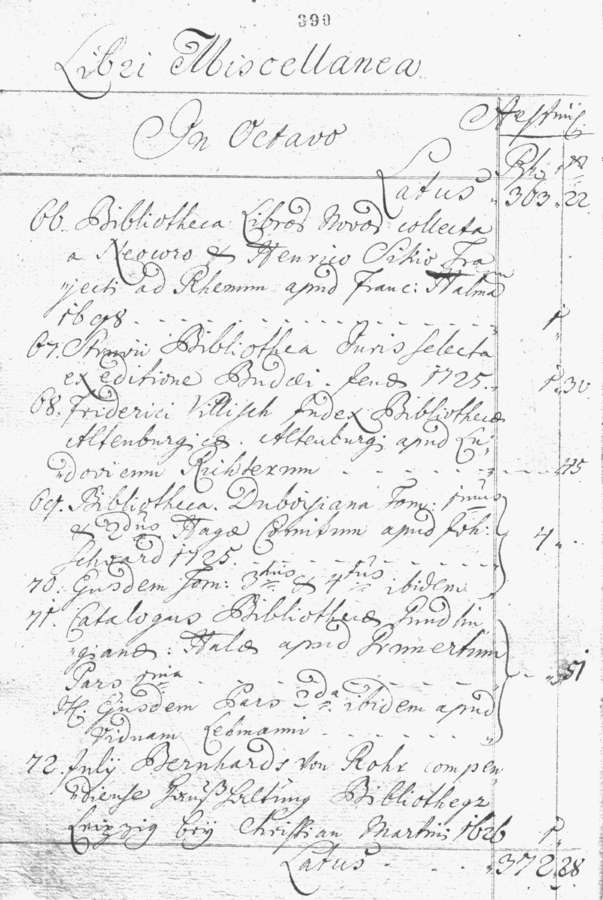 390
Libri Miscellanea
In Octavo
Rth
Latus 303 22
66. Bibliotheca Libros Novos collecta
a Neocoro & Henrico Sikio Tra
jecti ad Rhenum apud Franc: Halma
1698. 1
67. Struvii Bibliotheca Juris Selecta
ex editione Buddei. Jenæ 1725. 1. 30.
68. Friderici Villisch Index Bibliothecæ
Altenburgicæ. Altenburgi apud Lu
dovicum Richterum 45
69. Bibliotheca Duboisiana Tom:
& 2dus Hagæ Comitum apud Joh:
1725 4
70. Ejusdem Tom: 3tius & 4tus ibidem
71. Catalogus Bibliothecæ Gundlin
gianæ: Halæ apud
Pars 1ma 51
It. Ejusdem Pars 2da ibidem apud
Viduam Lehmanni
72. Julij Bernhards von Rohr compen
dieuse Haußhaltung Bibliotheqz
Leipzig bey Christian Martini 1626 1
Latus 372 28